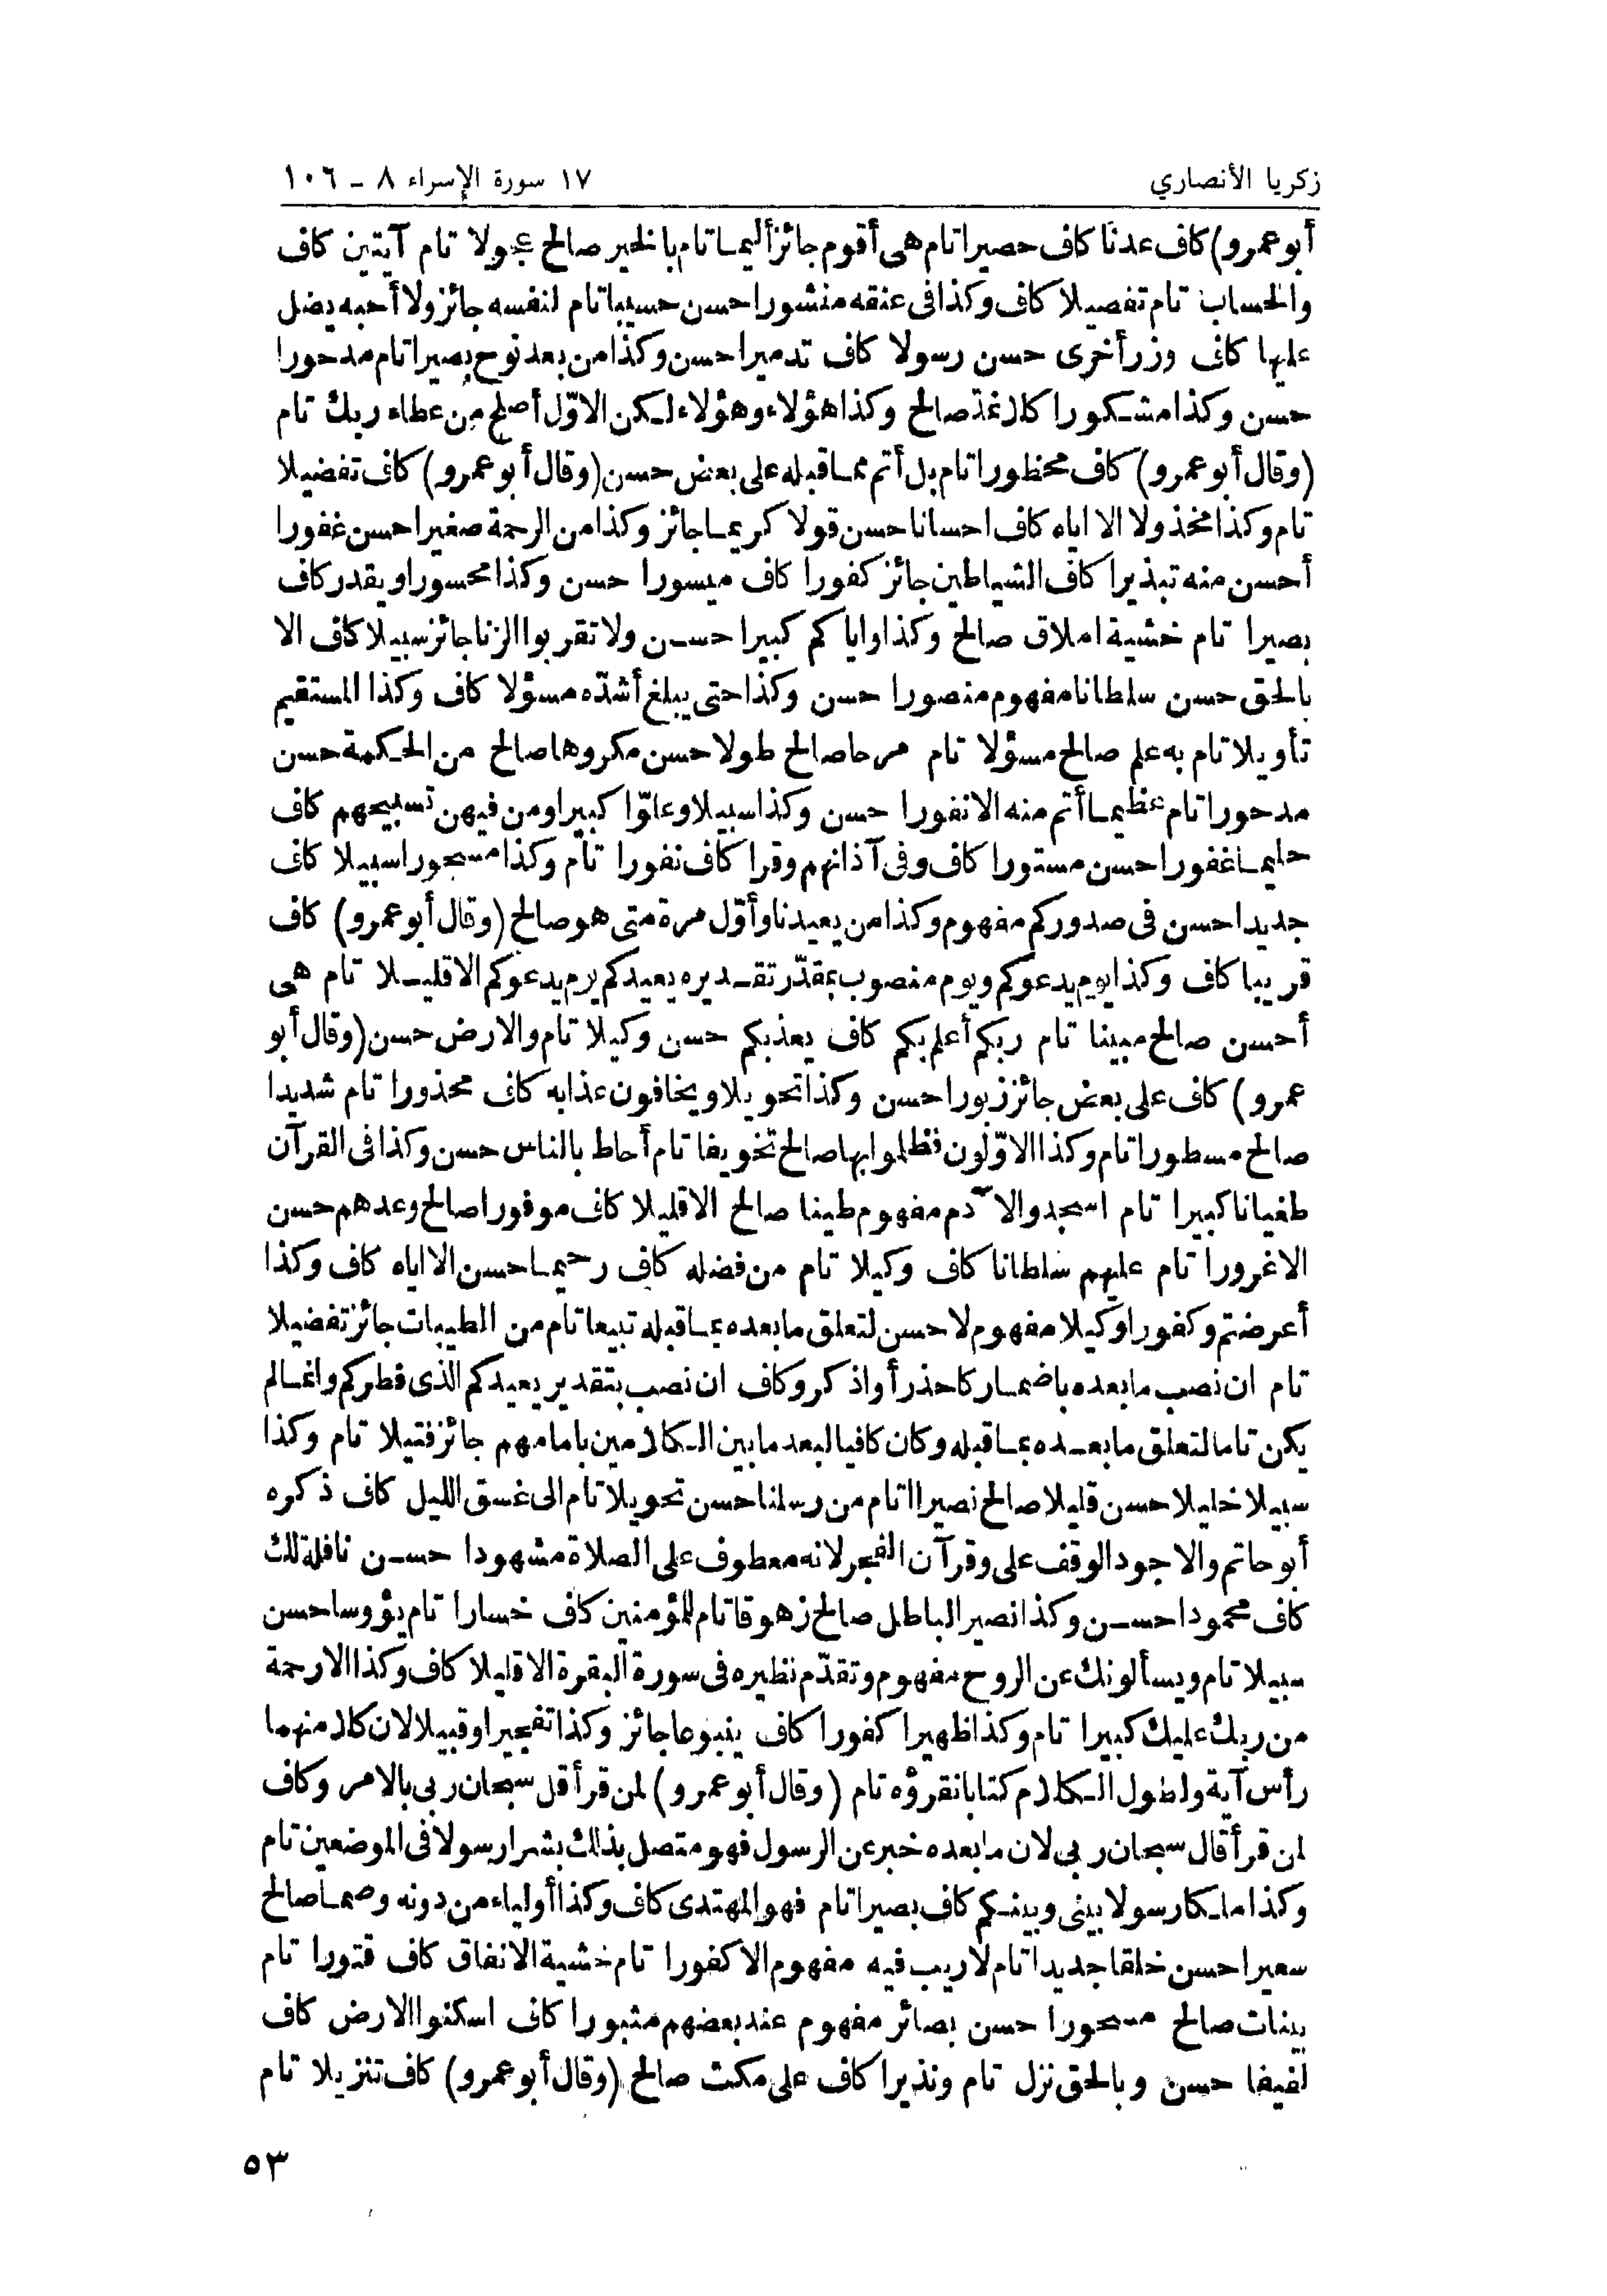 زكريا الأنصاري
١٧ سورة الإسراء ٨ - ١٠٦
أبو عمرو) كاف عدنا كاف حصيرا تام هى أقوم جائز أليما تام بالخير صالح عجولا تام آيتين كاف
والحساب تام تفصيلا كاف وكذا فى عنقه منشورا حسن حسيبا تام لنفسه جائز ولا أحبه يضل
عليها كاف وزر أخرى حسن رسولا كاف تدميرا حسن وكذا من بعد نوح بصيرا تام مدحورا
حسن وكذا مشكورا كلا نمد صالح وكذا هؤلاء وهؤلاء لكن الاوّل أصلح من عطاء ربك تام
(وقال أبو عمرو) كاف محظورا تام بل أتم مما قبله على بعض حسن (وقال أبو عمرو) كاف تفضيلا
تام وكذا مخذولا الا اياه كاف احسانا حسن قولا كريما جائز وكذا من الرحمة صغيرا حسن غفورا
أحسن منه تبذيرا كاف الشياطين جائز كفورا كاف ميسورا حسن وكذا محسورا ويقدر كاف
بصيرا تام خشية املاق صالح وكذا واياكم كبيرا حسن ولا تقربوا الزنا جائز سبيلا كاف الا
بالحق حسن سلطانا مفهوم منصورا حسن وكذا حتى يبلغ أشدّه مسؤلا كاف وكذا المستقيم
تأويلا تام به علم صالح مسؤلا تام مرحا صالح طولا حسن مكروها صالح من الحكمة حسن
مدحورا تام عظيما أتم منه الا نفورا حسن وكذا سبيلا وعلوّا كبيرا ومن فيهن تسبيحهم كاف
حليما غفورا حسن مستورا كاف وفى آذانهم وقرا كاف نفورا تام وكذا مسحورا سبيلا كاف
جديدا حسن فى صدوركم مفهوم وكذا من يعيدنا وأوّل مرة متى هو صالح (وقال أبو عمرو) كاف
قريبا كاف وكذا يوم يدعوكم ويوم منصوب بمقدّر تقديره يعيدكم يوم يدعوكم الا قليلا تام هى
أحسن صالح مبينا تام ربكم أعلم بكم كاف يعذبكم حسن وكيلا تام والارض حسن (وقال أبو
عمرو) كاف على بعض جائز زبورا حسن وكذا تحويلا ويخافون عذابه كاف محذورا تام شديدا
صالح مسطورا تام وكذا الاوّلون فظلموا بها صالح تخويفا تام أحاط بالناس حسن وكذا فى القرآن
طغيانا كبيرا تام اسجدوا لآدم مفهوم طينا صالح الا قليلا كاف موفورا صالح وعدهم حسن
الا غرورا تام عليهم سلطانا كاف وكيلا تام من فضله كاف رحيما حسن الا اياه كاف وكذا
أعرضتم وكفورا وكيلا مفهوم لا حسن لتعلق ما بعده بما قبله تبيعا تام من الطيبات جائز تفضيلا
تام ان نصب ما بعده باضمار كاحذر أو اذكر وكاف ان نصب بتقدير يعيدكم الذى فطركم وانما لم
يكن تاما لتعلق ما بعده بما قبله وكان كافيا لبعد ما بين الكلامين بامامهم جائز فتيلا تام وكذا
سبيلا خليلا حسن قليلا صالح نصيرا تام من رسلنا حسن تحويلا تام الى غسق الليل كاف ذكره
أبو حاتم والاجود الوقف على وقرآن الفجر لانه معطوف على الصلاة مشهودا حسن نافلة لك
كاف محمودا حسن وكذا نصير الباطل صالح زهوقا تام للمؤمنين كاف خسارا تام يؤوسا حسن
سبيلا تام ويسألونك عن الروح مفهوم وتقدّم نظيره فى سورة البقرة الا قليلا كاف وكذا الا رحمة
من ربك عليك كبيرا تام وكذا ظهيرا كفورا كاف ينبوعا جائز وكذا تفجيرا وقبيلا لان كلا منهما
رأس آية ولطول الكلام كتابا نقرؤه تام (وقال أبو عمرو) لمن قرأ قل سبحان ربى بالامر وكاف
لمن قرأ قال سبحان ربى لان ما بعده خبر عن الرسول فهو متصل بذلك بشرا رسولا فى الموضعين تام
وكذا ملكا رسولا بينى وبينكم كاف بصيرا تام فهو المهتدى كاف وكذا أولياء من دونه وصما صالح
سعيرا حسن خلقا جديدا تام لا ريب فيه مفهوم الا كفورا تام خشية الانفاق كاف قتورا تام
بينات صالح مسحورا حسن بصائر مفهوم عند بعضهم مثبورا كاف اسكنوا الارض كاف
لفيفا حسن وبالحق نزل تام ونذيرا كاف على مكث صالح (وقال أبو عمرو) كاف تنزيلا تام
٥٣